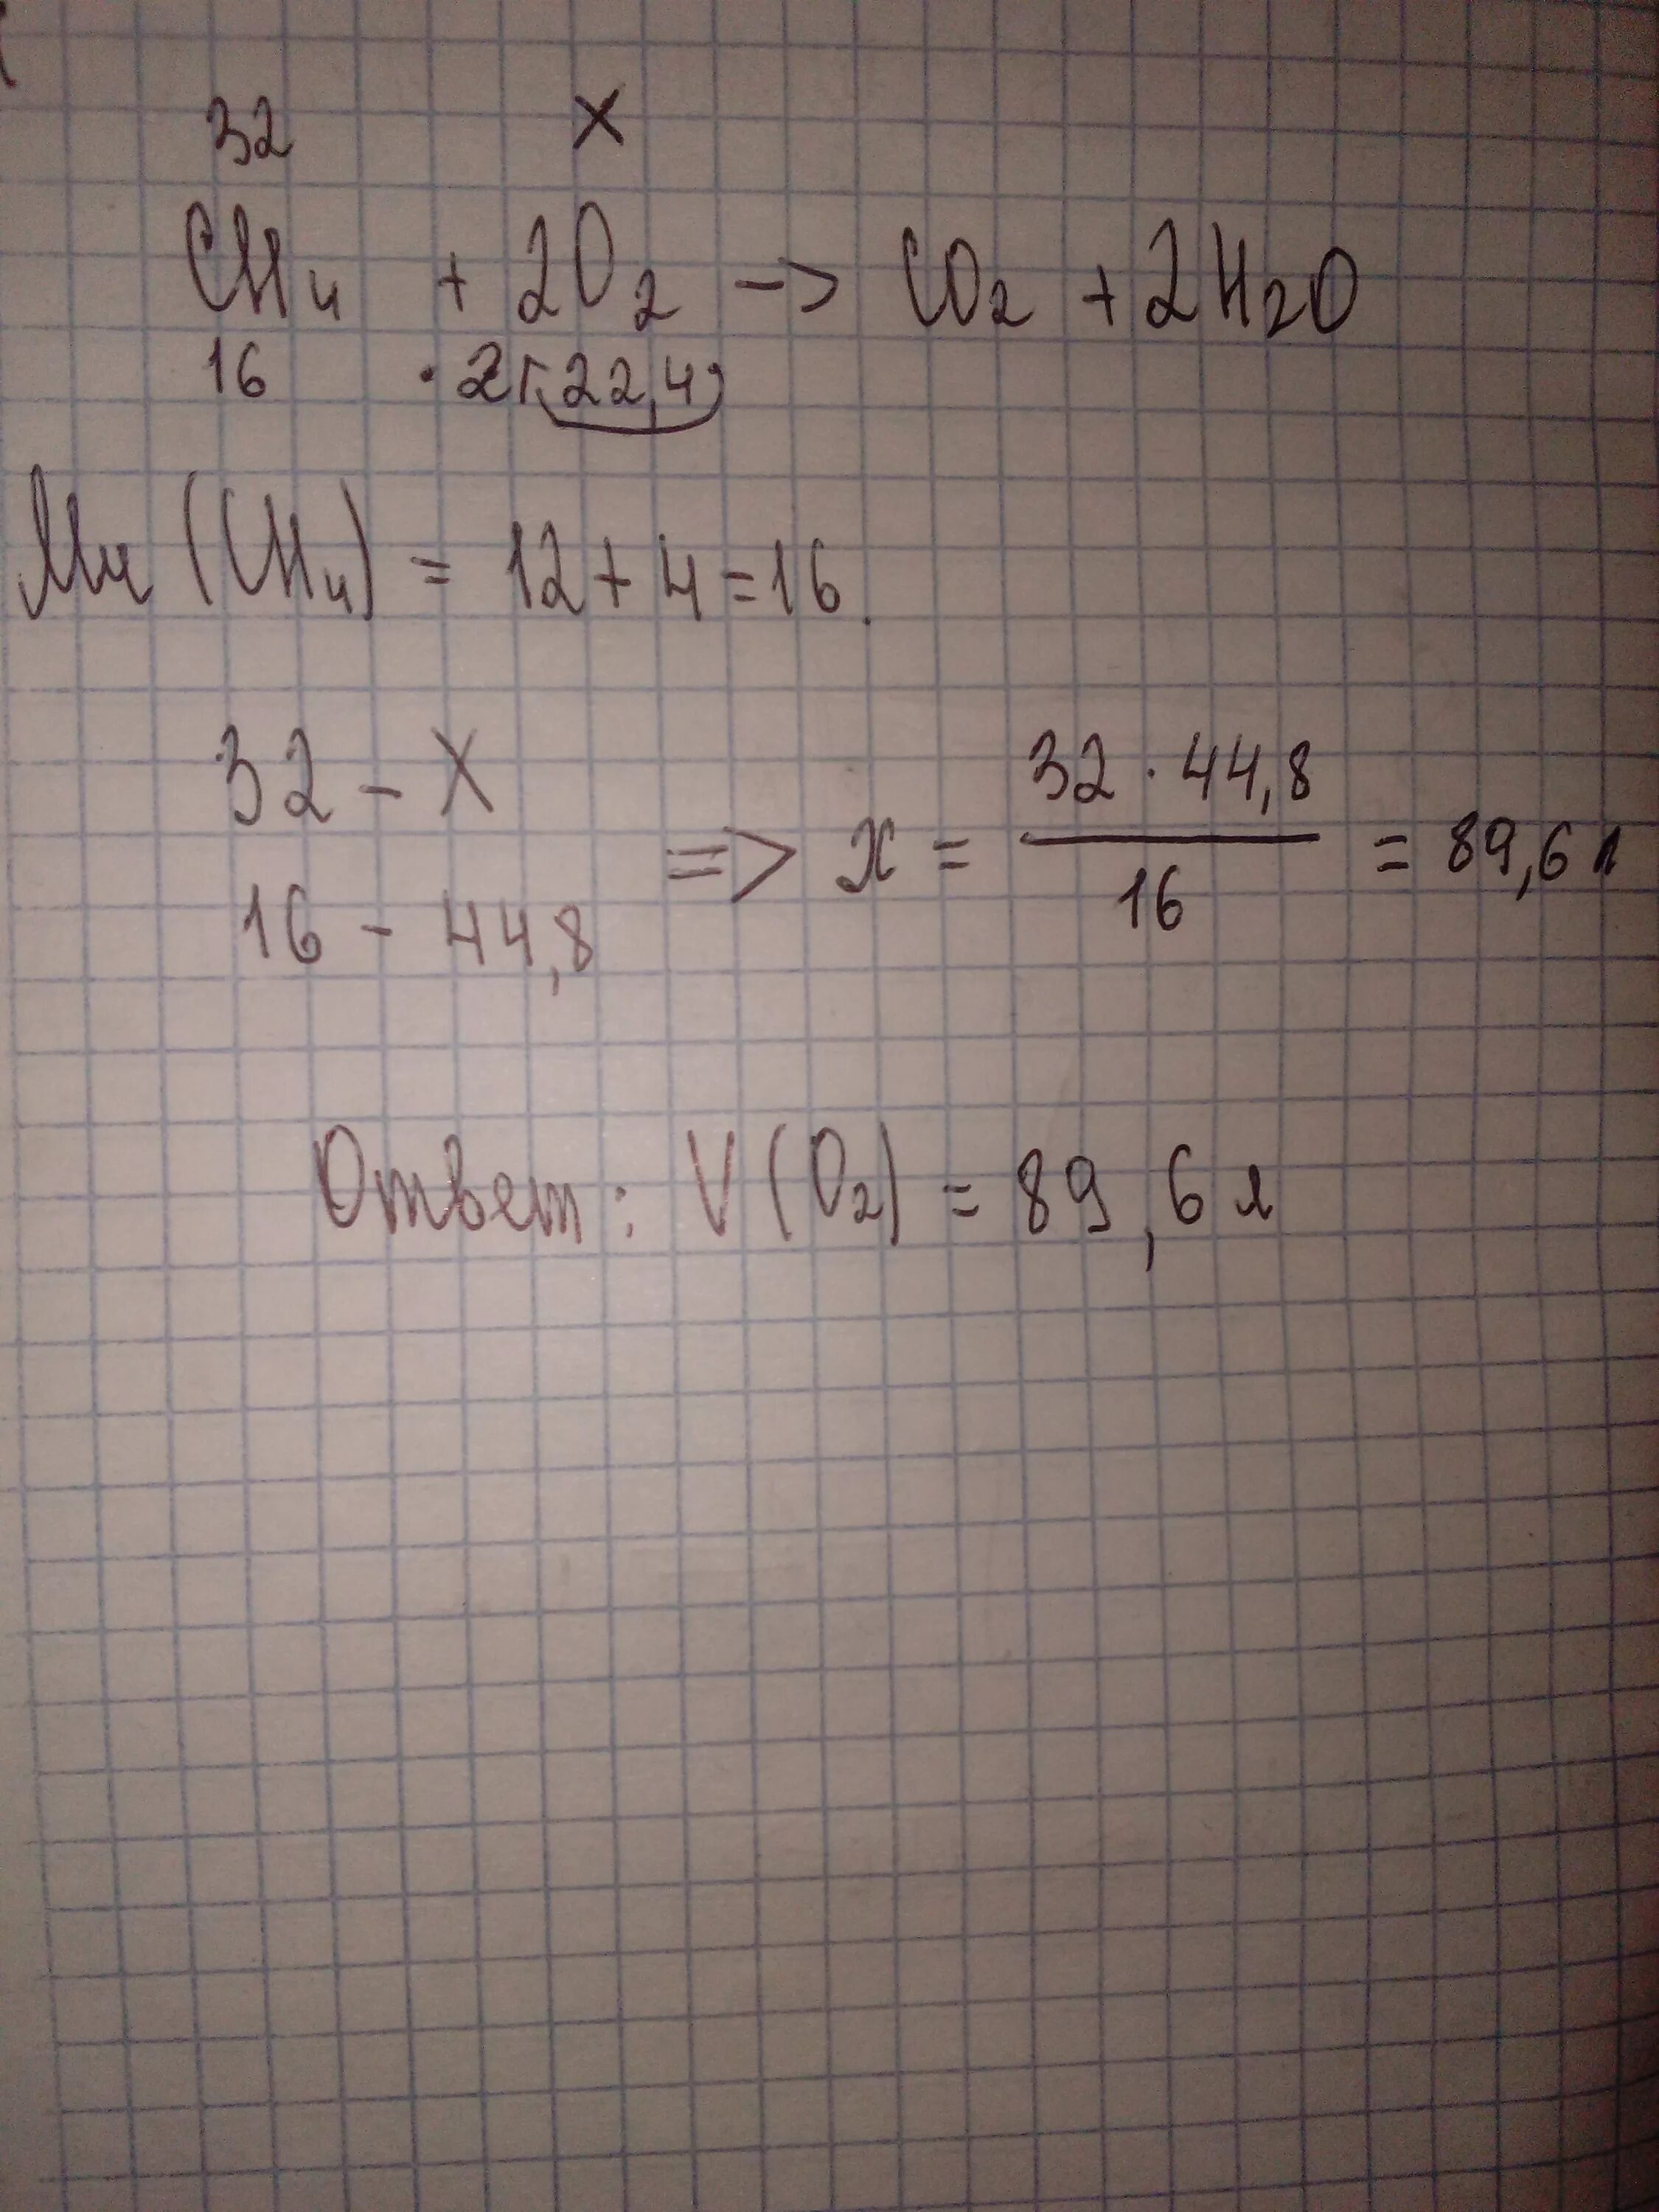 32 X
CH4 + 2O2 -> CO2 + 2H2O
16 · 2 · 22,4
Mr (CH4) = 12 + 4 = 16.
32 - X
32 · 44,8
=> x = = 89,6 л
16
16 - 44,8
Ответ: V (O2) = 89,6 л